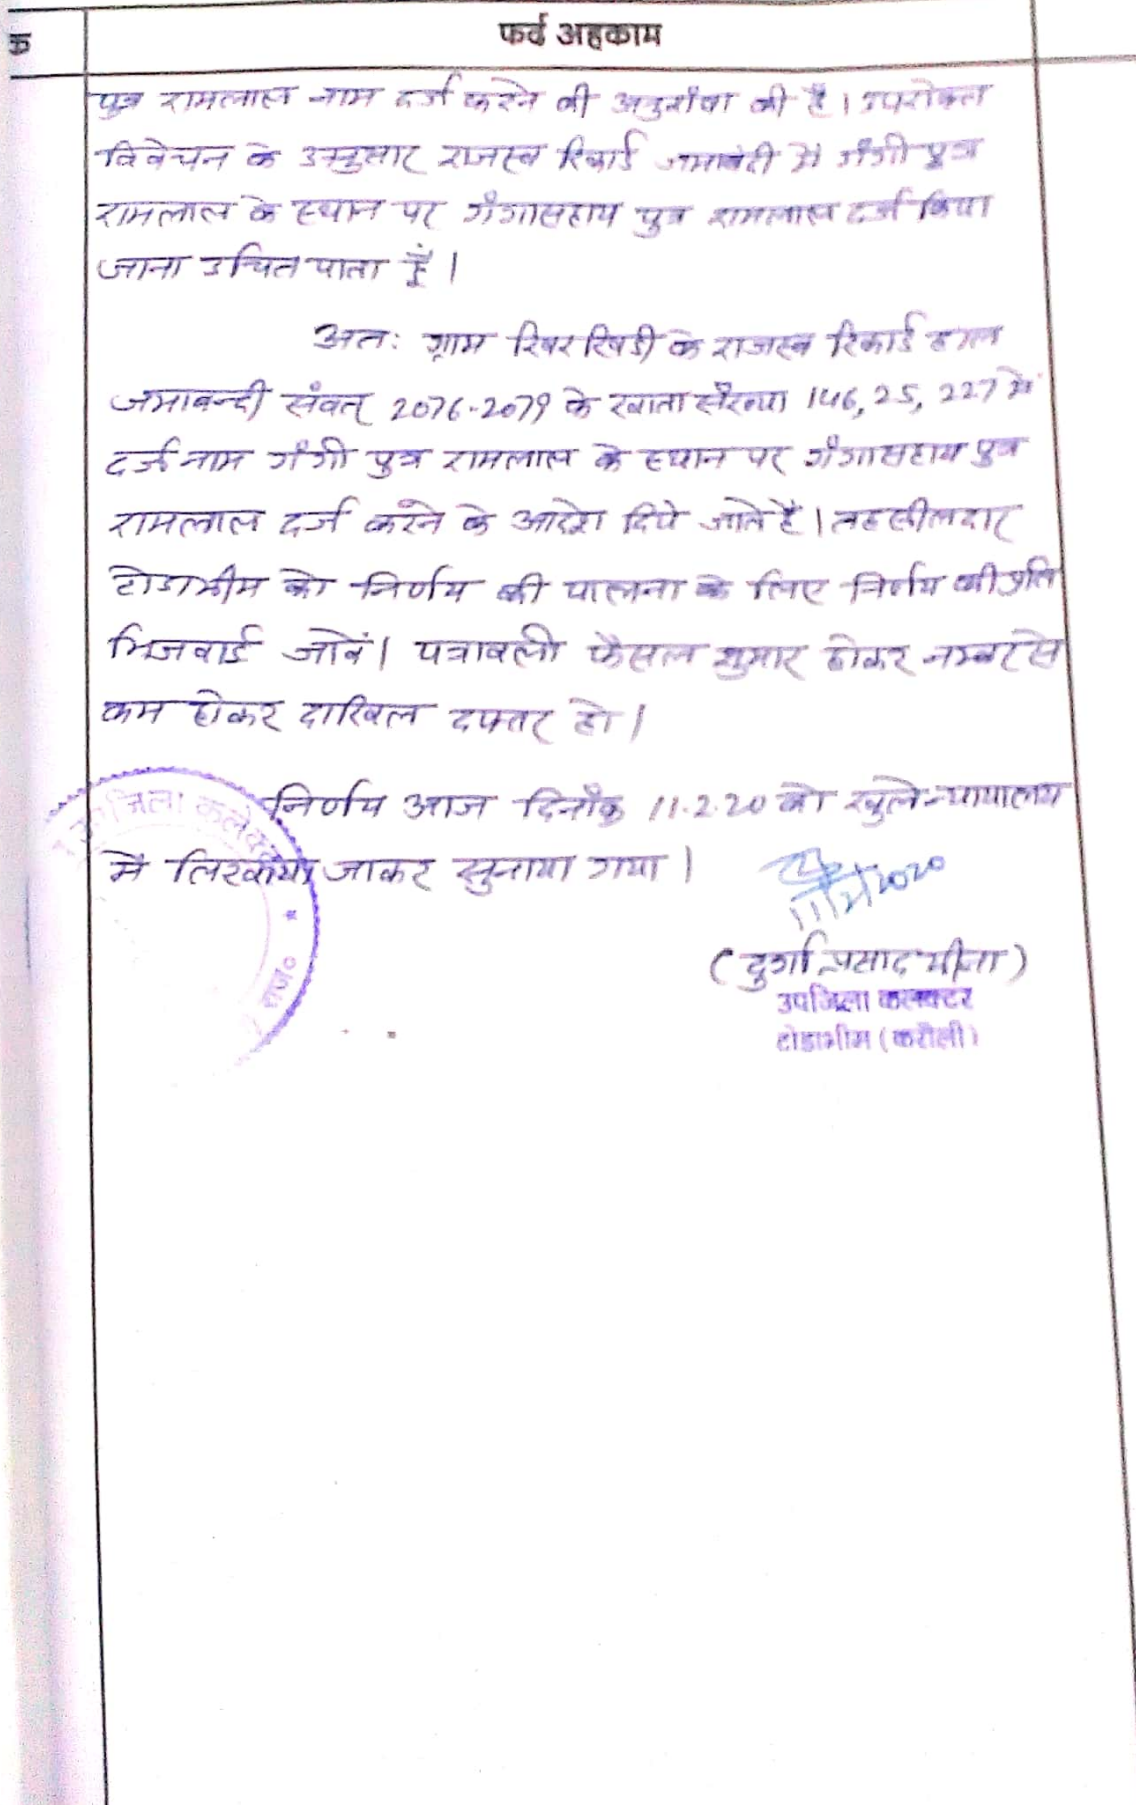 क
फर्द अहकाम
पुत्र रामलाल नाम दर्ज करने की अनुशंषा की है। उपरोक्त
विवेचन के अनुसार राजस्व रिकार्ड जमाबंदी में गँगी पुत्र
रामलाल के स्थान पर गँगासहाय पुत्र रामलाल दर्ज किया
जाना उचित पाता हूँ।
अतः ग्राम खिरखिडी के राजस्व रिकार्ड हाल
जमाबन्दी संवत् 2076-2079 के खाता सँख्या 146, 25, 227 में
दर्ज नाम गँगी पुत्र रामलाल के स्थान पर गँगासहाय पुत्र
रामलाल दर्ज करने के आदेश दिये जाते है। तहसीलदार
टोडाभीम को निर्णय की पालना के लिए निर्णय की प्रति
भिजवाई जावें। पत्रावली फैसल शुमार होकर नम्बर से
कम होकर दाखिल दफ्तर हो।
निर्णय आज दिनाँक 11.2.20 को खुले न्यायालय
में लिखाया जाकर सुनाया गया।
11/2/2020
(दुर्गा प्रसाद मीना)
उपजिला कलक्टर
टोडाभीम (करौली)
उपजिला कलेक्टर
* राज०